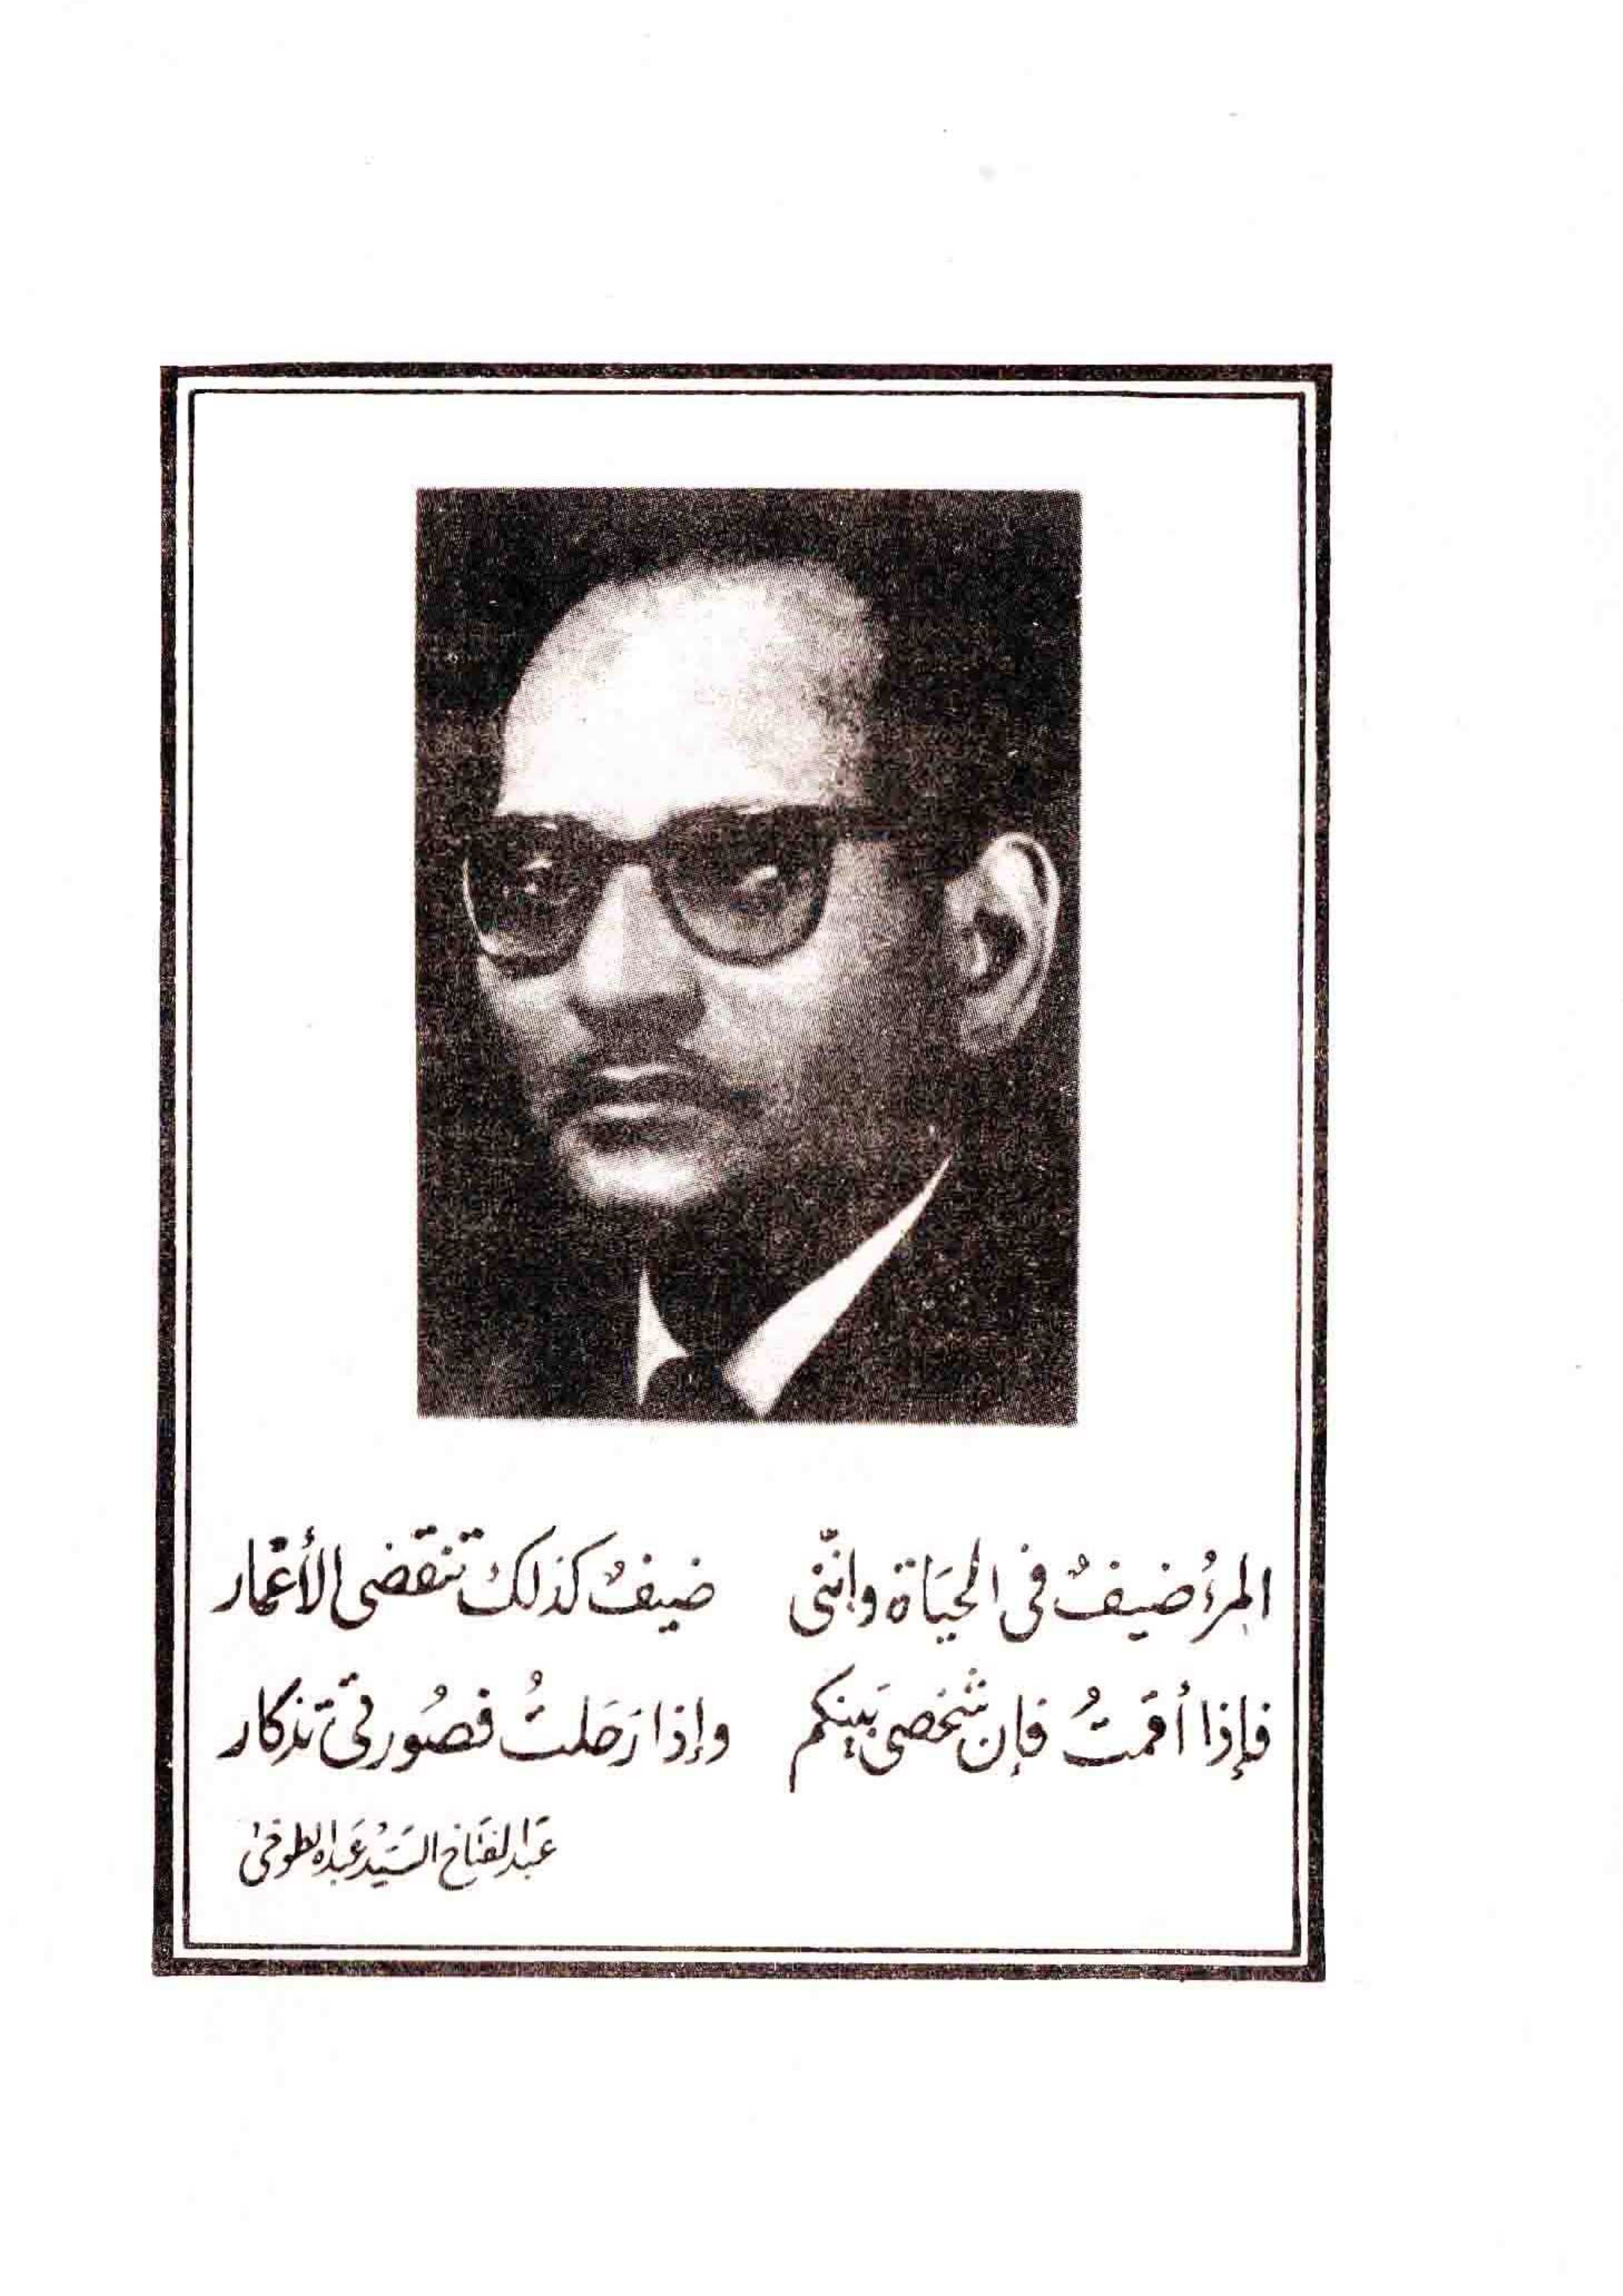 المرءُ ضيفٌ فى الحيَاة وإننّى ضيفٌ كذلكَ تنقضى الأعمَار
فإذا أقمتُ فإن شخصى بَينكم وإذا رَحَلتُ فصُورتى تذكار
عَبد الفتاح السَيّد عَبده الطوخى